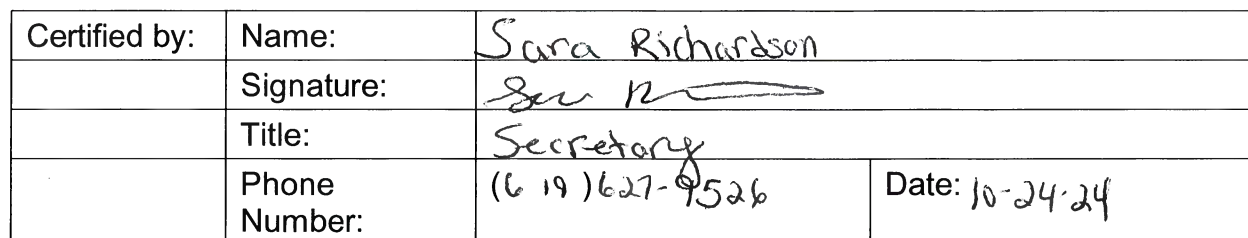 Certified by: Name: Sara Richardson
Signature:
Title: Secretary
Phone Number: (619)627-9526 Date: 10-24-24